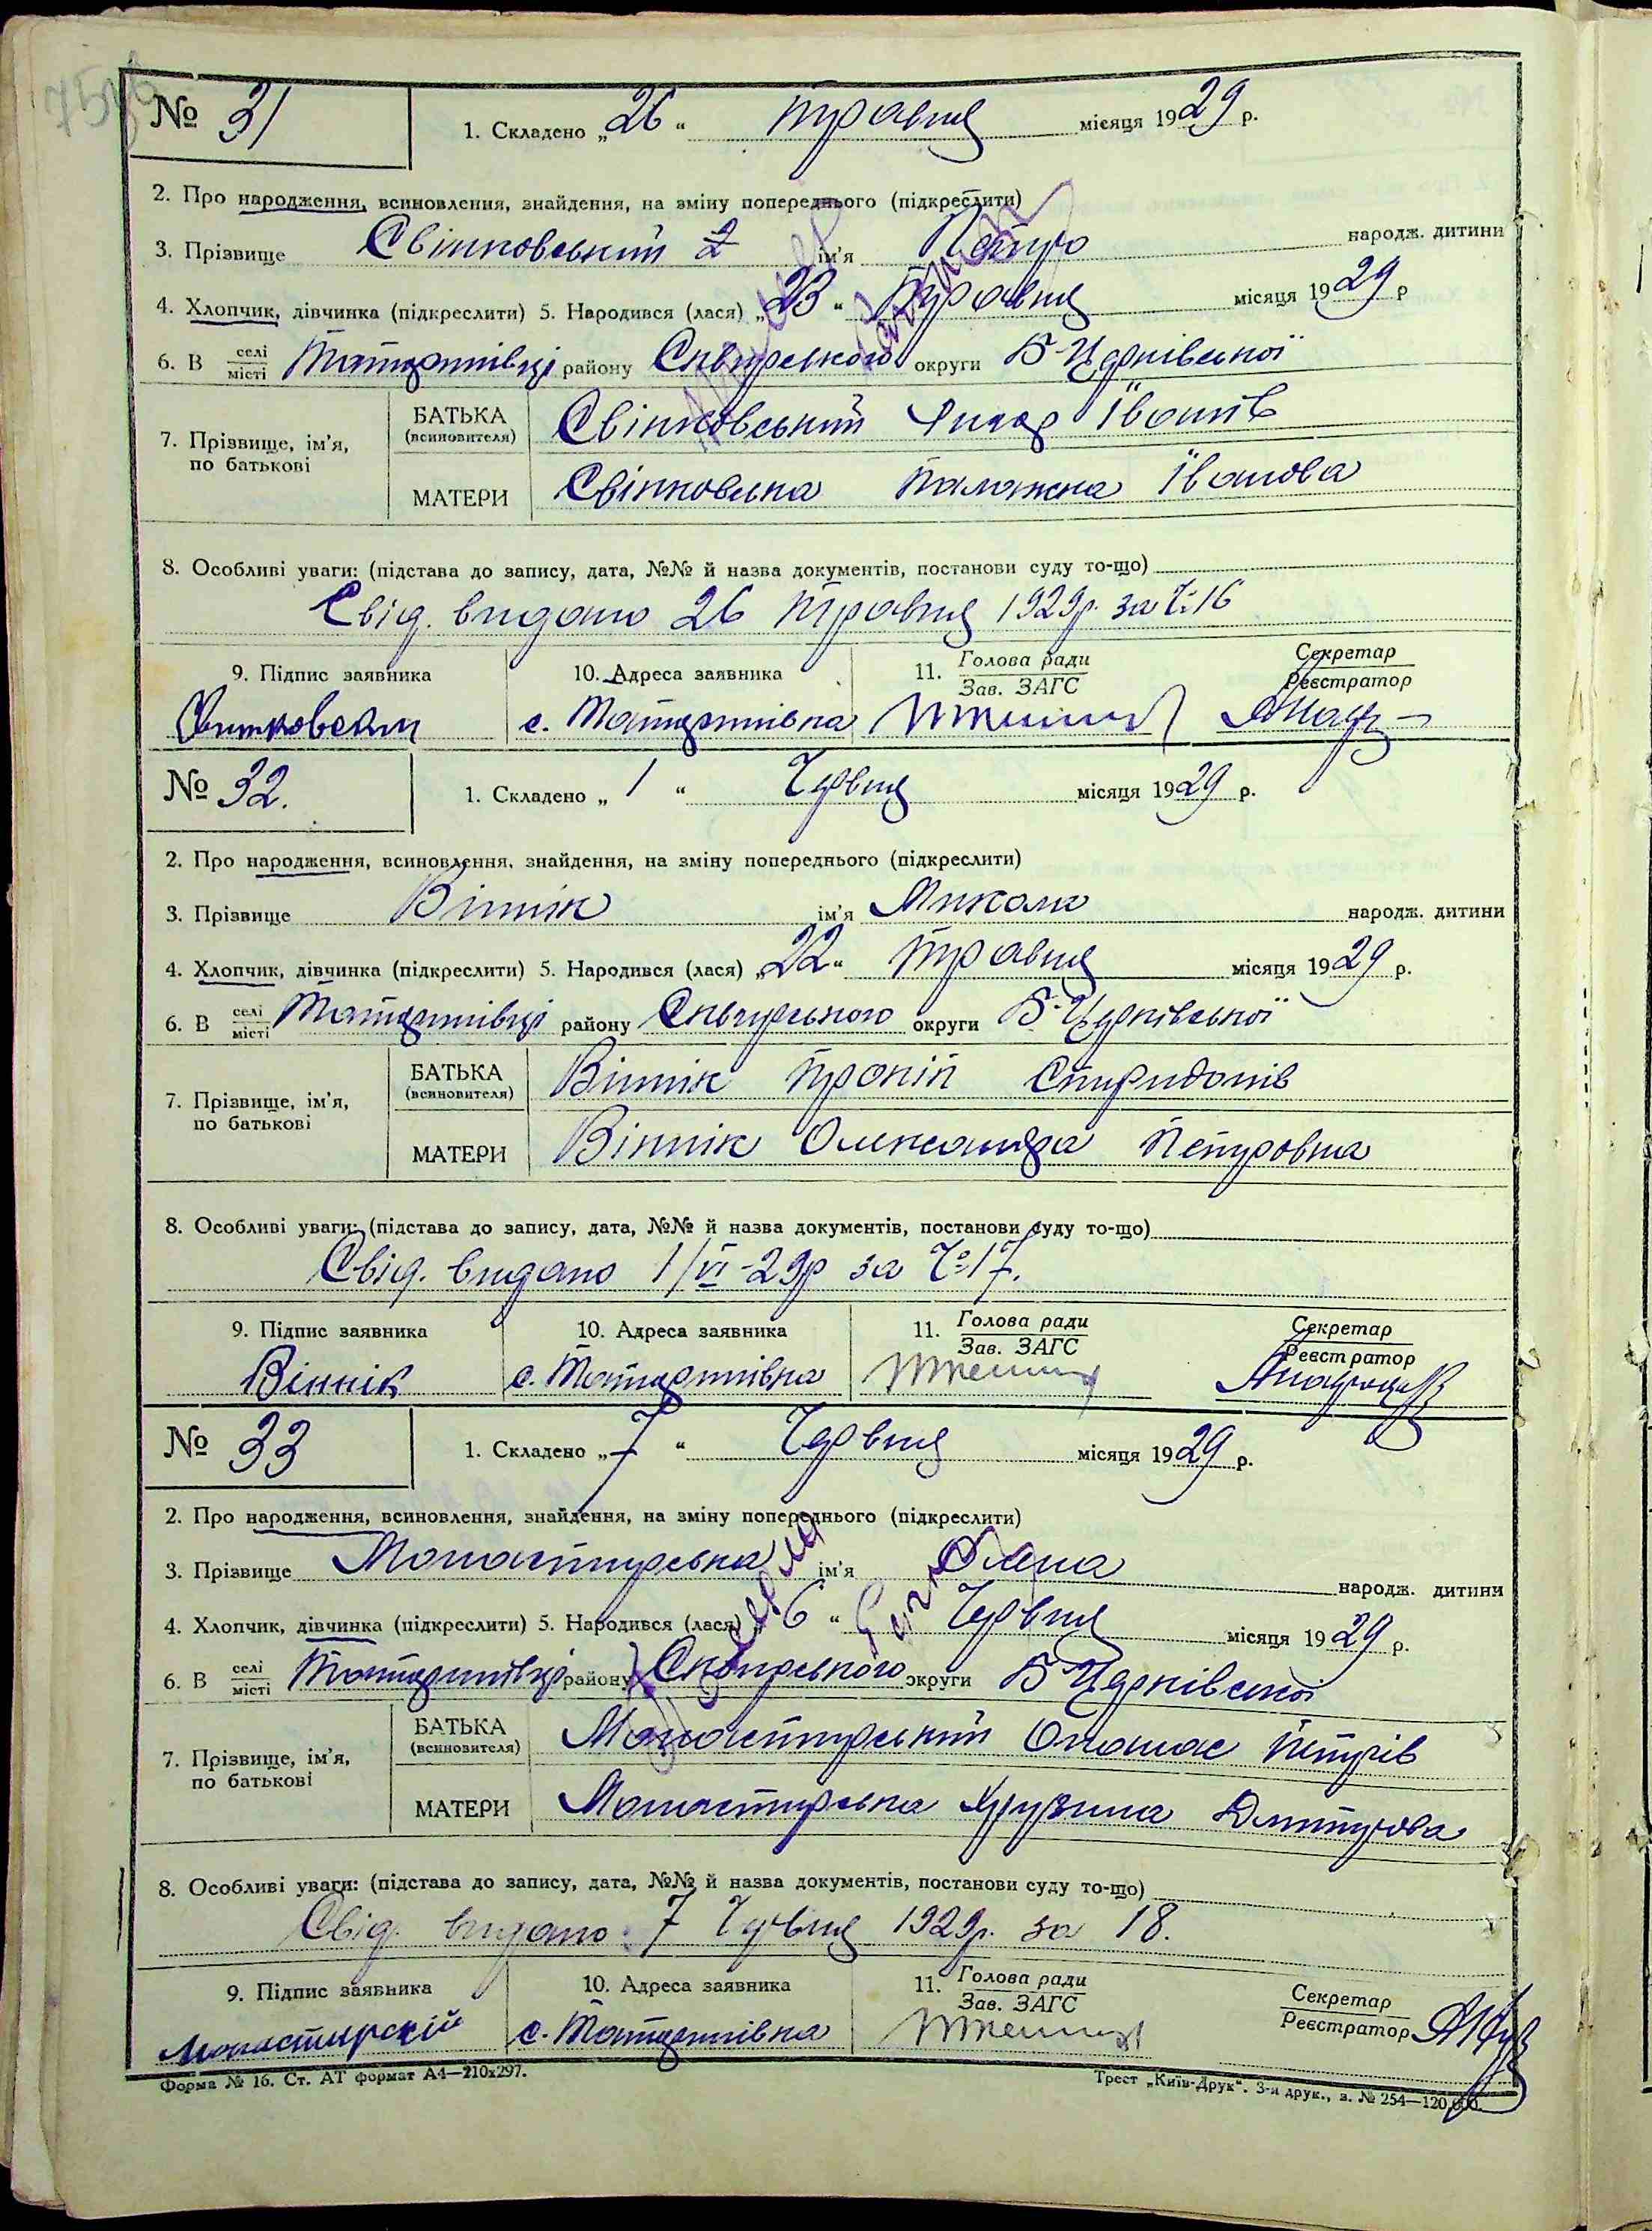 № 31
1. Складено „26“ травня місяця 1929 р.
2. Про народження, всиновлення, знайдення, на зміну попереднього (підкреслити)
3. Прізвище Свінковський 2 ім'я Петро народж. дитини
4. Хлопчик, дівчинка (підкреслити) 5. Народився (лася) „23“ Травня місяця 1929 р
6. В селі місті Татаринівці району Сквирського округи Б-Церківської
7. Прізвище, ім'я, по батькові
БАТЬКА (всиновителя) Свінковський Іванів
МАТЕРИ Свінковська Паложка Іванова
8. Особливі уваги: (підстава до запису, дата, №№ й назва документів, постанови суду то-що)
Свід. видано 26 травня 1929р. за Ч: 16
9. Підпис заявника
10. Адреса заявника
11. Голова ради Зав. ЗАГС
Секретар Реєстратор
с. Татаринівка
№ 32.
1. Складено „1“ Червня місяця 1929 р.
2. Про народження, всиновлення, знайдення, на зміну попереднього (підкреслити)
3. Прізвище Віннік ім'я Микола народж. дитини
4. Хлопчик, дівчинка (підкреслити) 5. Народився (лася) „22“ травня місяця 1929 р.
6. В селі місті Татаринівці району Сквирського округи Б-Церківської
7. Прізвище, ім'я, по батькові
БАТЬКА (всиновителя) Віннік Прокіп Спиридонів
МАТЕРИ Віннік Олександра Петровна
8. Особливі уваги: (підстава до запису, дата, №№ й назва документів, постанови суду то-що)
Свід. видано 1/VI-29р за Ч: 17.
9. Підпис заявника
10. Адреса заявника
11. Голова ради Зав. ЗАГС
Секретар Реєстратор
Віннік с. Татаринівка
№ 33
1. Складено „7“ Червня місяця 1929 р.
2. Про народження, всиновлення, знайдення, на зміну попереднього (підкреслити)
3. Прізвище Монастирська ім'я Олена народж. дитини
4. Хлопчик, дівчинка (підкреслити) 5. Народився (лася) „6“ Червня місяця 1929 р.
6. В селі місті Татаринівці району Сквирського округи Б-Церківської
7. Прізвище, ім'я, по батькові
БАТЬКА (всиновителя) Монастирський Опанас Петрів
МАТЕРИ Монастирська Хрузина Дмитрова
8. Особливі уваги: (підстава до запису, дата, №№ й назва документів, постанови суду то-що)
Свід. видано 7 Червня 1929р. за 18.
9. Підпис заявника
10. Адреса заявника
11. Голова ради Зав. ЗАГС
Секретар Реєстратор
Монастирскій с. Татаринівка
Форма № 16. Ст. АТ формат А4—210х297.
Трест „Київ-Друк“. 3-я друк., з. № 254—120.000.